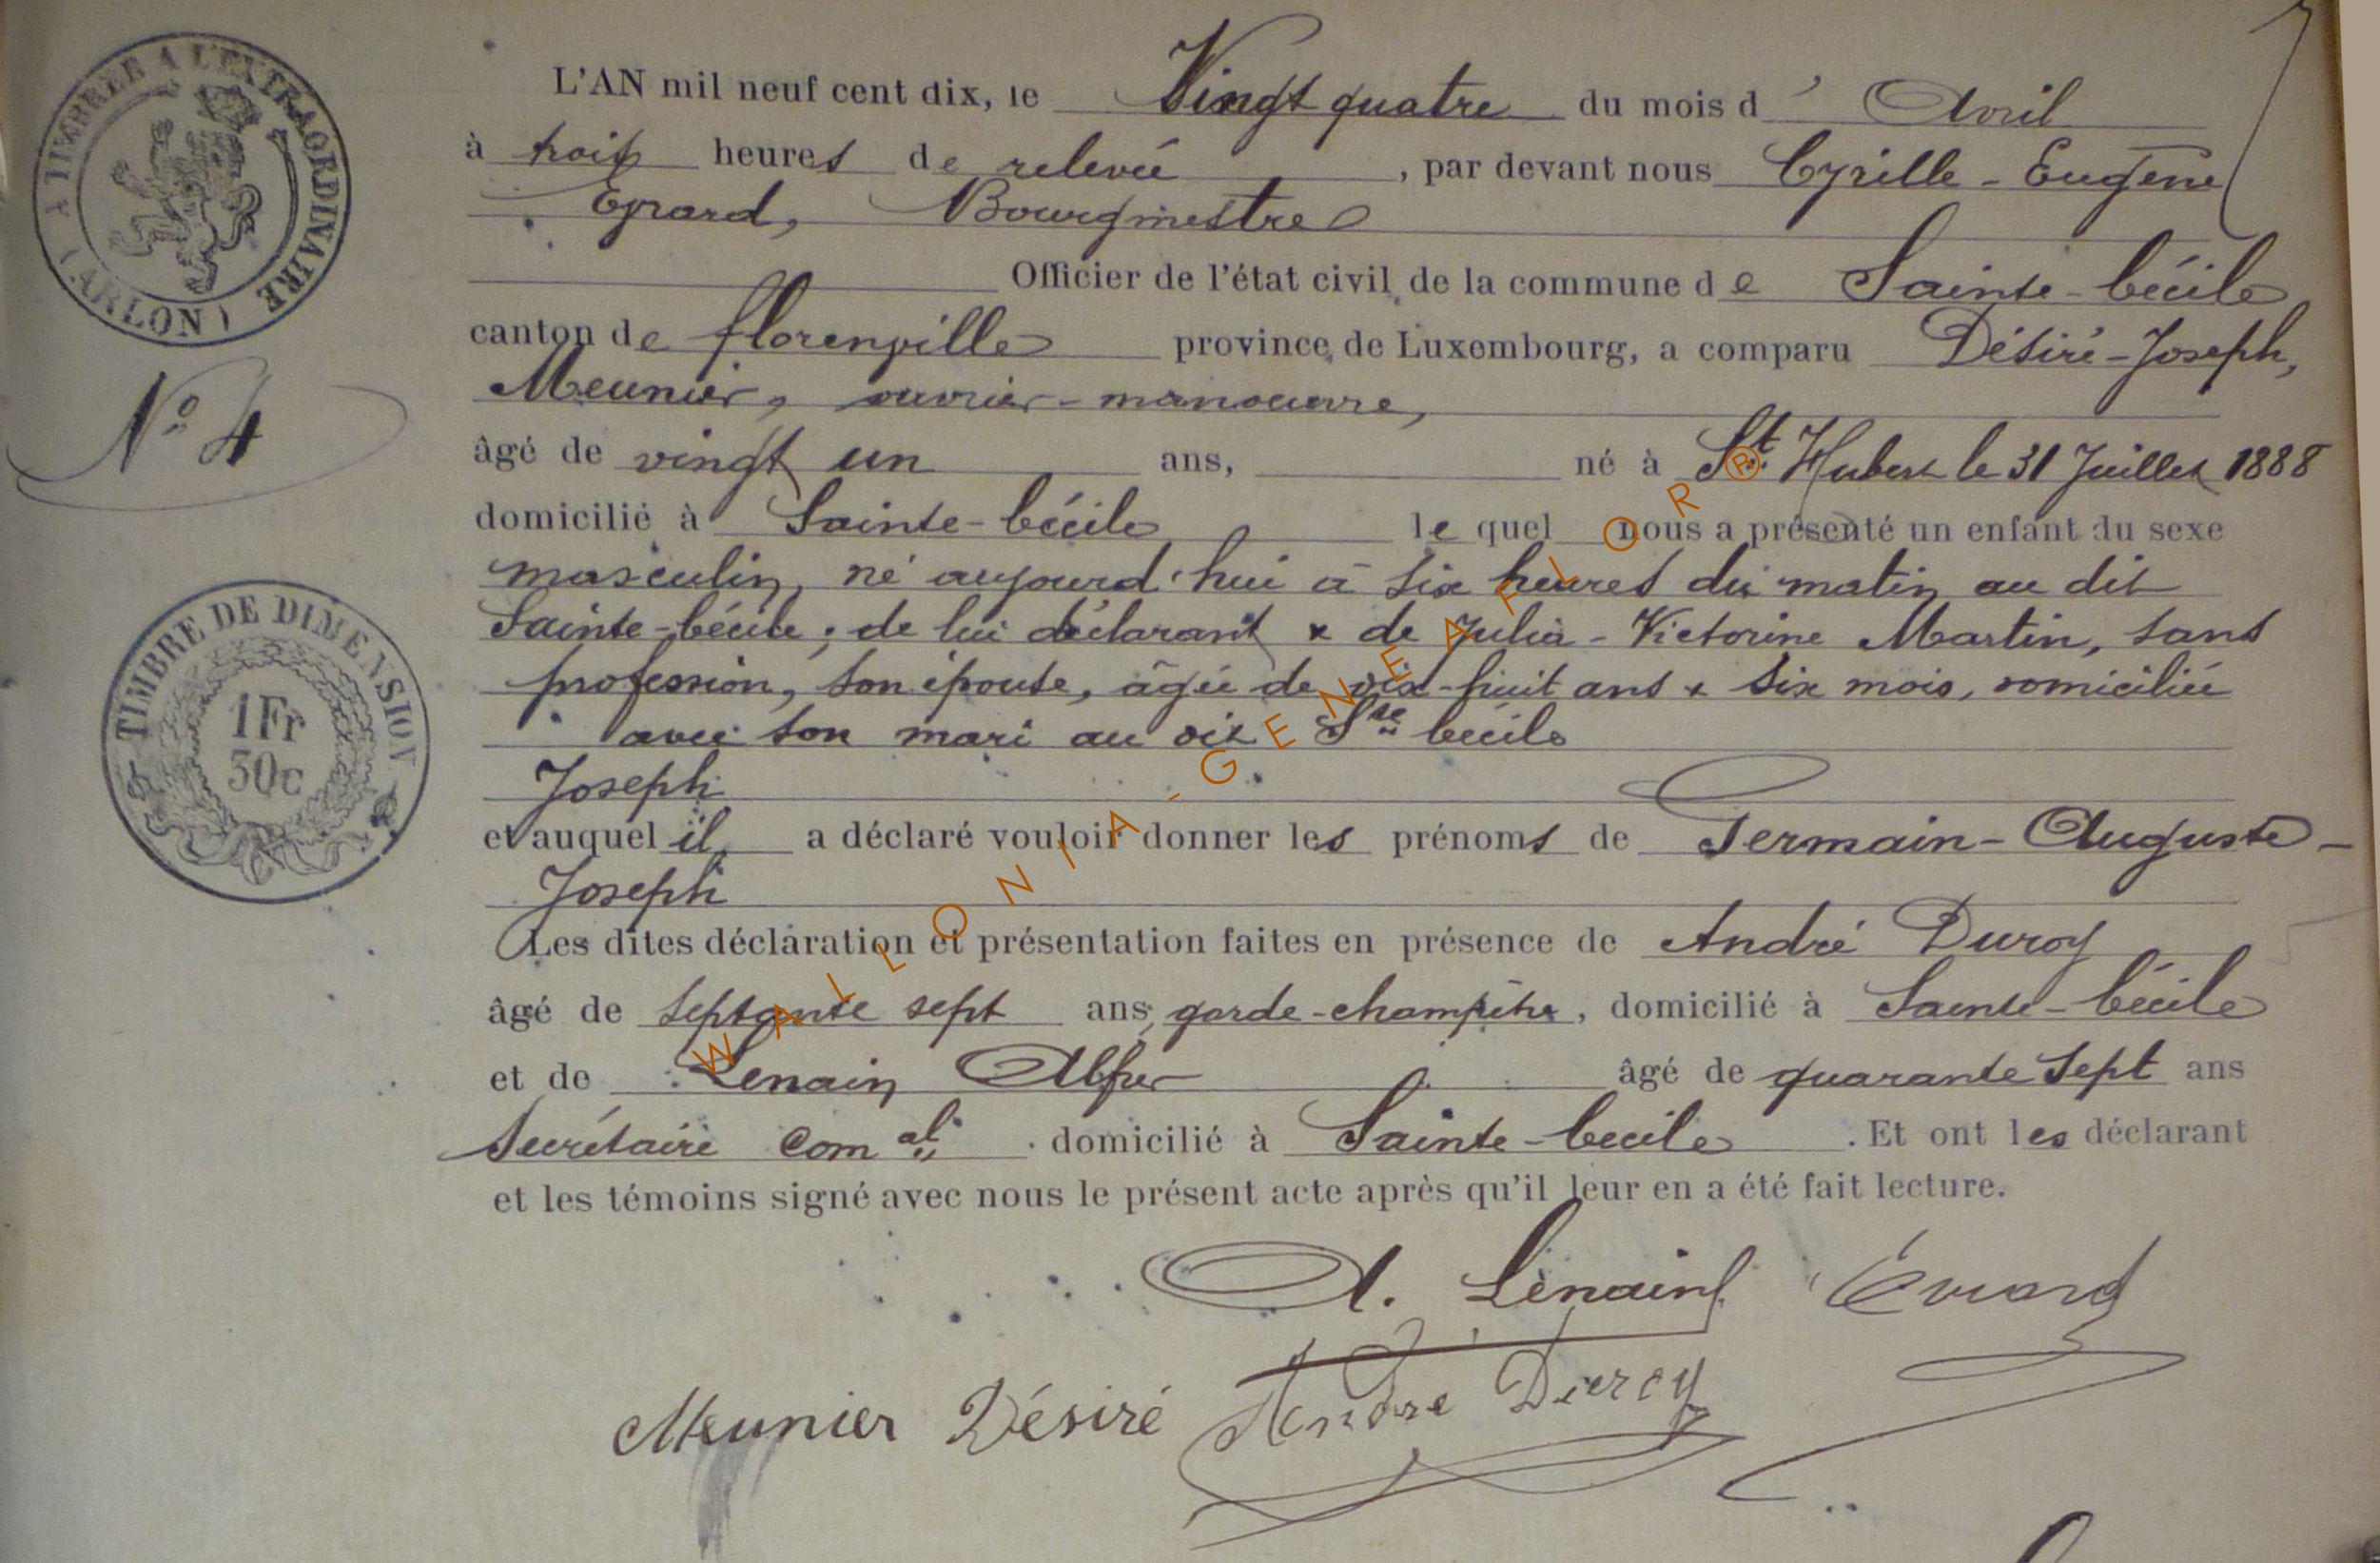 A TIMBRER A L'EXTRAORDINAIRE
(ARLON)
L'AN mil neuf cent dix, le Vingt quatre du mois d' Avril
à trois heures de relevée, par devant nous Cyrille-Eugène
Evrard, Bourgmestre
Officier de l'état civil de la commune de Sainte-Cécile
canton de florenville province de Luxembourg, a comparu Désiré-Joseph,
Meunier, ouvrier-manoeuvre,
N° 4
âgé de vingt un ans, né à St. Hubert le 31 Juillet 1888
domicilié à Sainte-Cécile lequel nous a présenté un enfant du sexe
masculin, né aujourd'hui à six heures du matin au dit
Sainte-Cécile; de lui déclarant & de Julia-Victorine Martin, sans
profession, son épouse, âgée de dix-huit ans & six mois, domiciliée
avec son mari au dit Ste Cécile
TIMBRE DE DIMENSION
1Fr
30c
Joseph
et auquel il a déclaré vouloir donner les prénoms de Germain-Auguste-
Joseph
Les dites déclaration et présentation faites en présence de André Duroy
âgé de septante sept ans, garde-champêtre, domicilié à Sainte-Cécile
et de Lenain Alfred âgé de quarante sept ans
Secrétaire Comal. domicilié à Sainte-Cecile. Et ont les déclarant
et les témoins signé avec nous le présent acte après qu'il leur en a été fait lecture.
A. Lenain Evrard
Meunier Désiré André Duroy
WALLONIA-GENEAFLOR®